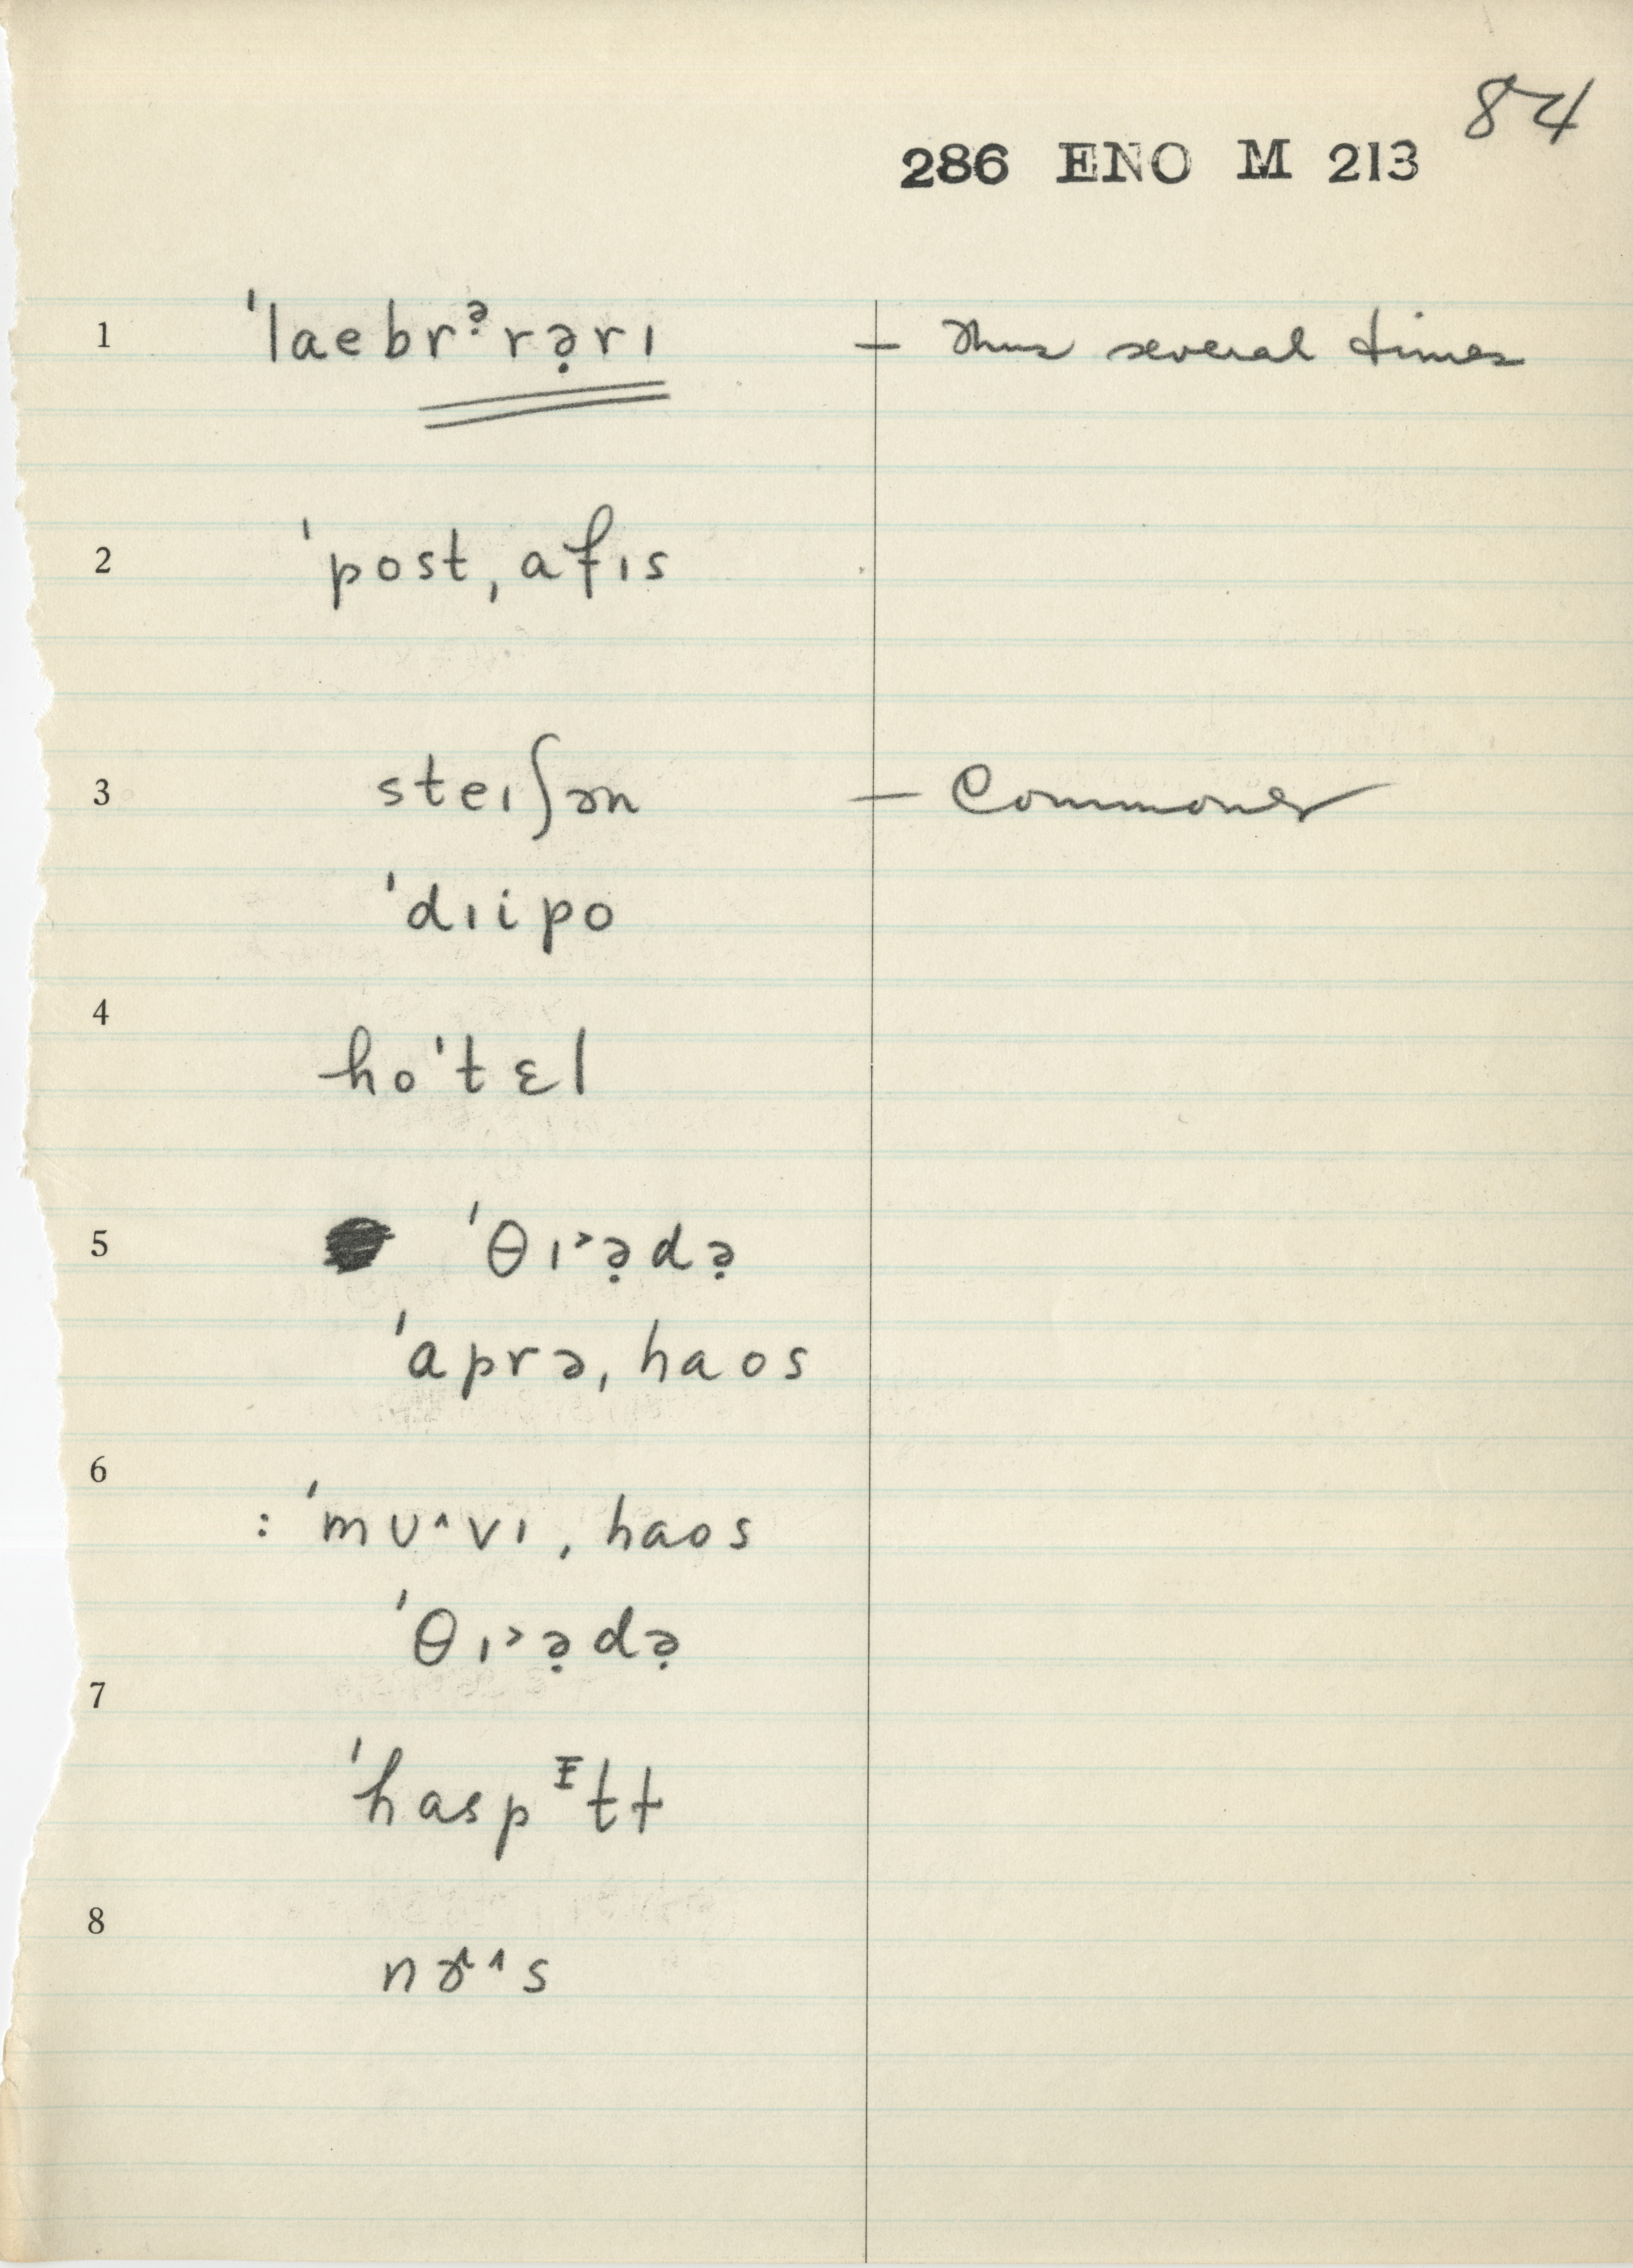 84
286 ENO M 213
1 ˈlaebrᵊ̣rə̣rɪ — Thus several times
2 ˈpost ˌafɪs
3 steɪʃən — Commoner
ˈdɪipo
4
hoˈtɛl
5 ˈθɪ˃ə̣də̣
ˈaprə ˌhaos
6
: ˈmʊ^vɪ ˌhaos
ˈθɪ˃ə̣də̣
7
ˈhaspᵻtɫ
8
nɚ^^s